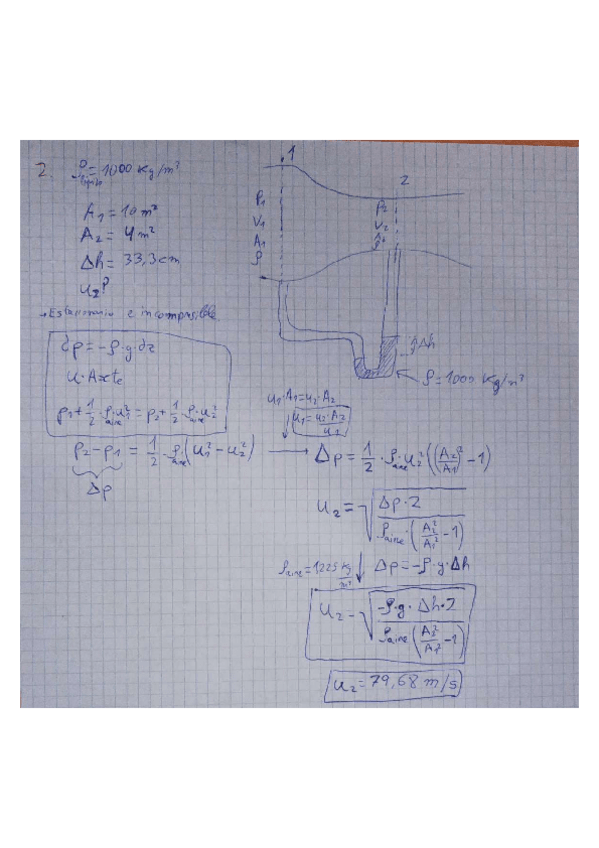 2. ρ liquido = 1000 Kg/m³
A₁ = 10 m²
A₂ = 4 m²
Δh = 33,3 cm
u₂?
→ Estacionario e incompresible
dp = -ρ·g·dz
u·A = cte
p₁ + 1/2·ρ aire·u₁² = p₂ + 1/2·ρ aire·u₂²
p₂ - p₁ = 1/2·ρ aire (u₁² - u₂²)
Δp
1
2
P₁
V₁
A₁
ρ
P₂
V₂
A₂
ρ
Δh
ρ = 1000 Kg/m³
u₁·A₁ = u₂·A₂
Δp = 1/2·ρ aire·u₂² ((A₂/A₁)² - 1)
u₂ = √(Δp·2 / ρ aire·(A₂²/A₁² - 1))
ρ aire = 1225 Kg/m³
Δp = -ρ·g·Δh
u₂ = √(-ρ·g·Δh·2 / ρ aire (A₂²/A₁² - 1))
u₂ = 79,68 m/s